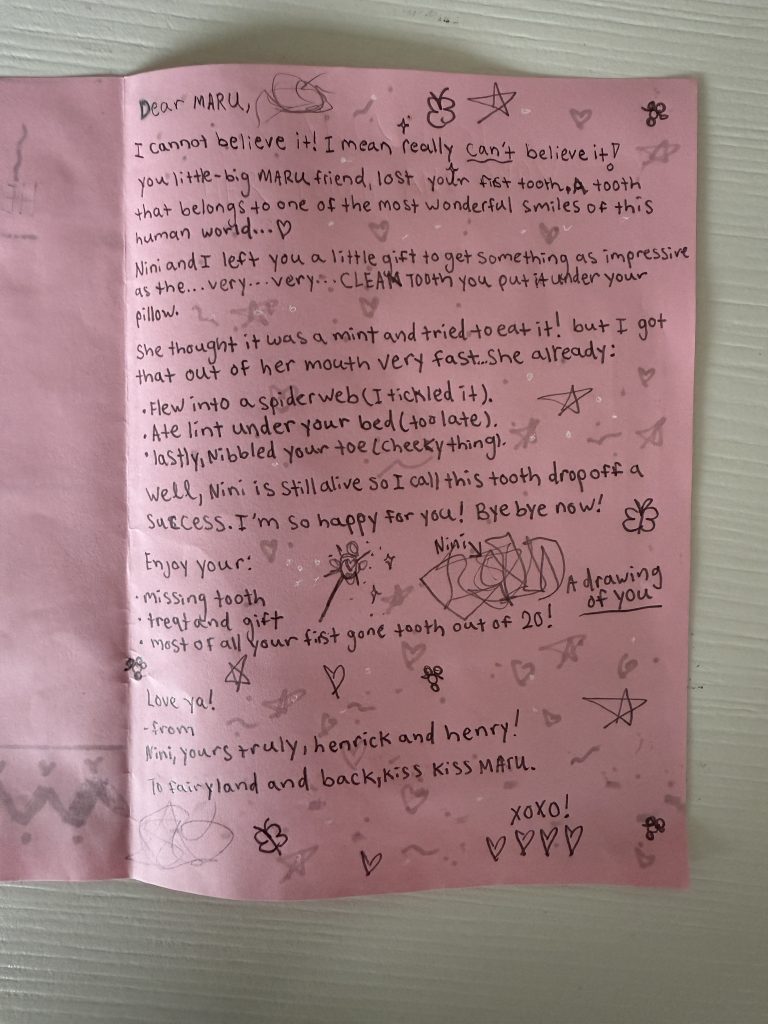 Dear MARU,
I cannot believe it! I mean really can't believe it!
you little-big MARU friend, lost your fist tooth. A tooth
that belongs to one of the most wonderful smiles of this
human world...♡
Nini and I left you a little gift to get something as impressive
as the...very...very...CLEAN TOOTH you put it under your
pillow.
She thought it was a mint and tried to eat it! but I got
that out of her mouth very fast...She already:
• Flew into a spiderweb (I tickled it).
• Ate lint under your bed (too late).
• lastly, Nibbled your toe (cheeky thing).
Well, Nini is still alive so I call this tooth drop off a
success. I'm so happy for you! Bye bye now!
Nini
Enjoy your:
A drawing
of you
• missing tooth
• treat and gift
• most of all your first gone tooth out of 20!
Love ya!
- from
Nini, yours truly, henrick and henry!
To fairyland and back, kiss kiss MARU.
XOXO!